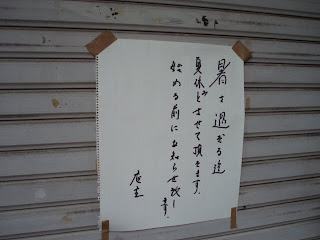 暑さ過ぎる迄
夏休みとさせて頂きます。
始める前にお知らせ致し
ます。
店主